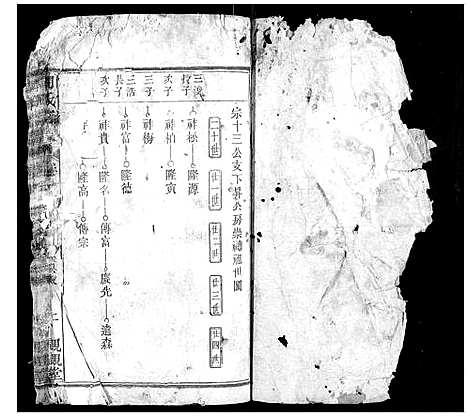 宗十三公支下昇公房崇禮派世圖
二十世 廿一世 廿二世 廿三世 廿四世
三溪
長子 祥松 隆源
次子 祥柏 隆寅
三子 祥梅
三浩
長子 祥富 隆德
次子 祥貴 隆名 傳富 慶光 遠森
子 隆高 傳宗
觀堂